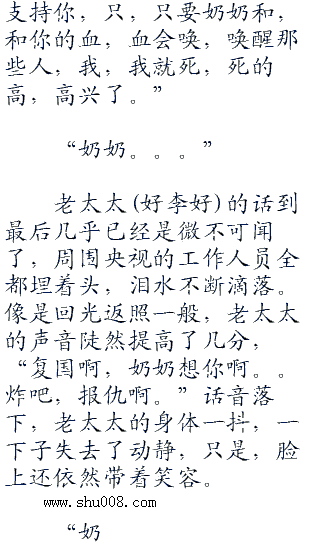 支持你，只，只要奶奶和，
和你的血，血会唤，唤醒那
些人，我，我就死，死的
高，高兴了。”
“奶奶。。。”
老太太(好李好)的话到
最后几乎已经是微不可闻
了，周围央视的工作人员全
都埋着头，泪水不断滴落。
像是回光返照一般，老太太
的声音陡然提高了几分，
“复国啊，奶奶想你啊。。
炸吧，报仇啊。”话音落
下，老太太的身体一抖，一
下子失去了动静，只是，脸
上还依然带着笑容。
www.shu008.com
“奶